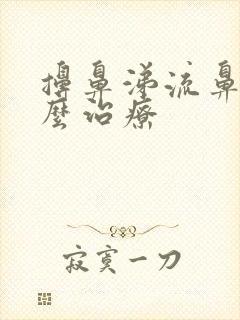 擤鼻涕流鼻
么治疗
寂寞一刀